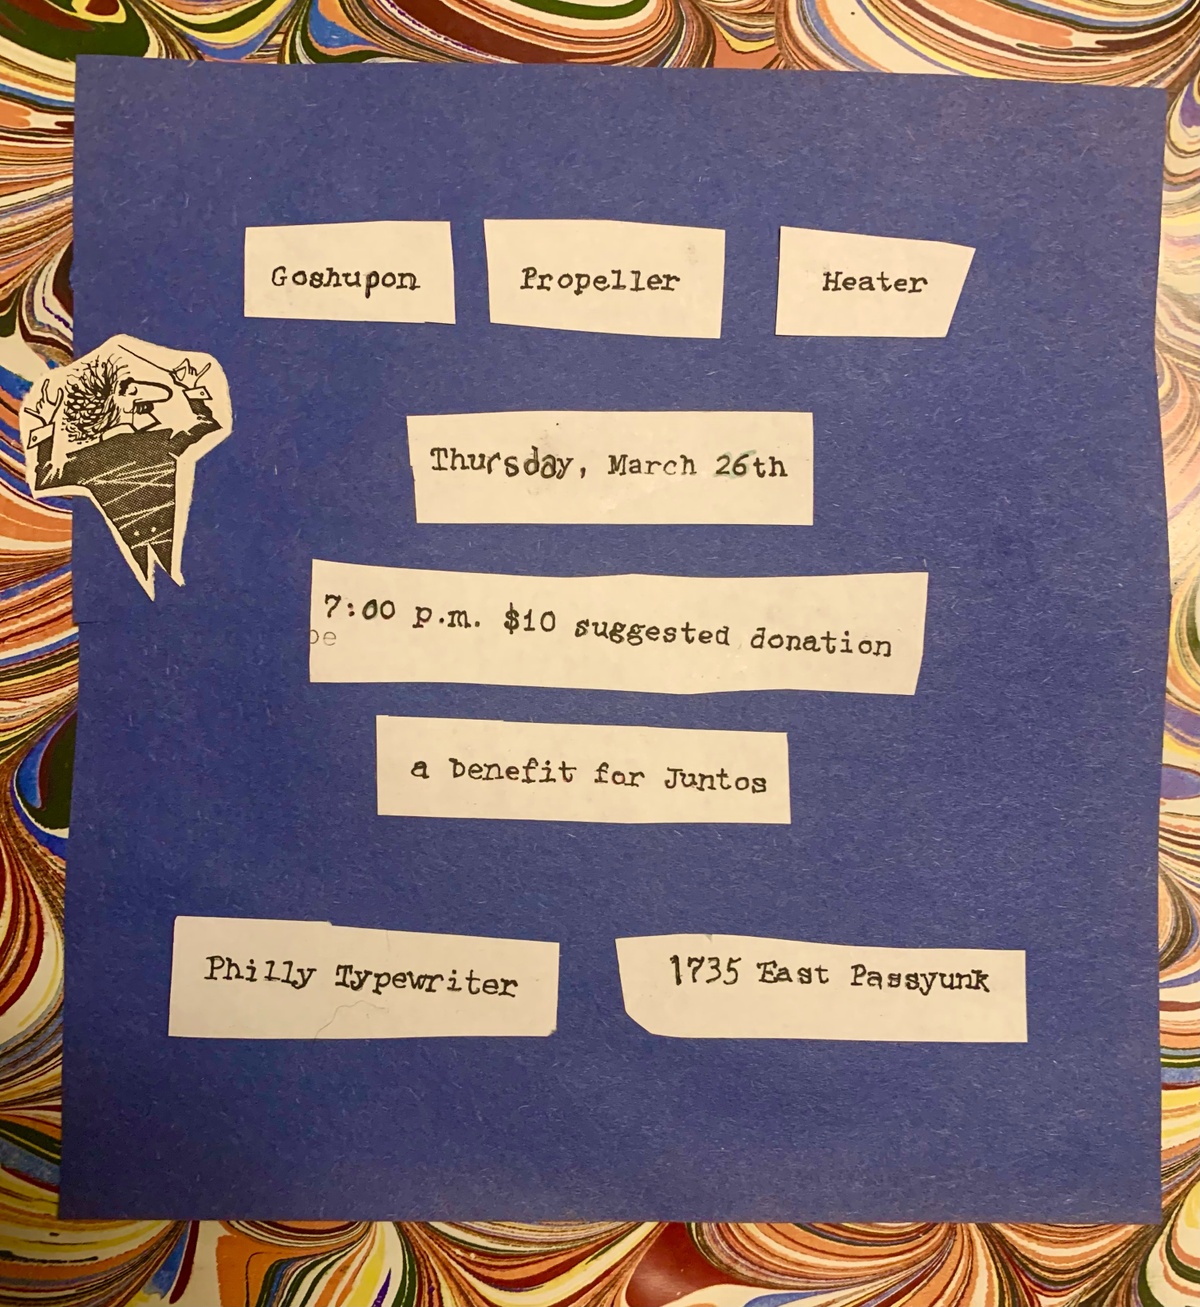 Goshupon Propeller Heater
Thursday, March 26th
7:00 p.m. $10 suggested donation
a benefit for Juntos
Philly Typewriter 1735 East Passyunk